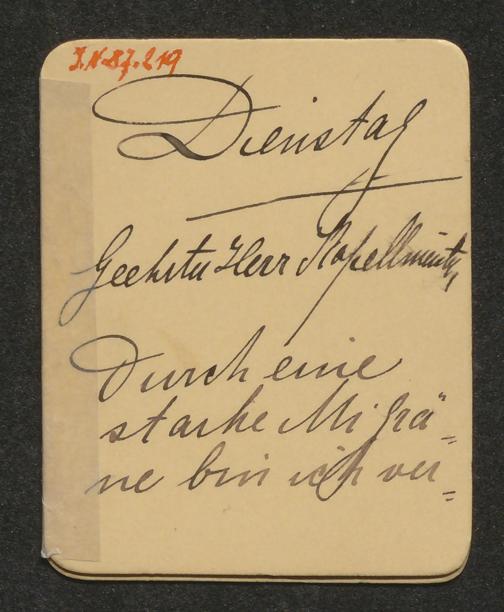 I.N. 87.219
Dienstag
Geehrter Herr Kapellmeister
Durch eine
starke Migrä=
ne bin ich ver=